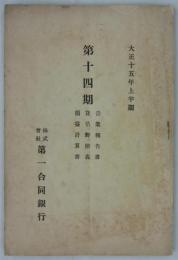 大正十五年上半期
第十四期
営業報告書
貸借対照表
損益計算書
株式会社
第一合同銀行